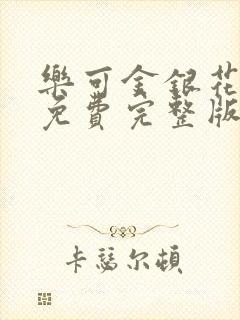 樂可金銀花
免費完整版
卡瑟尔頓